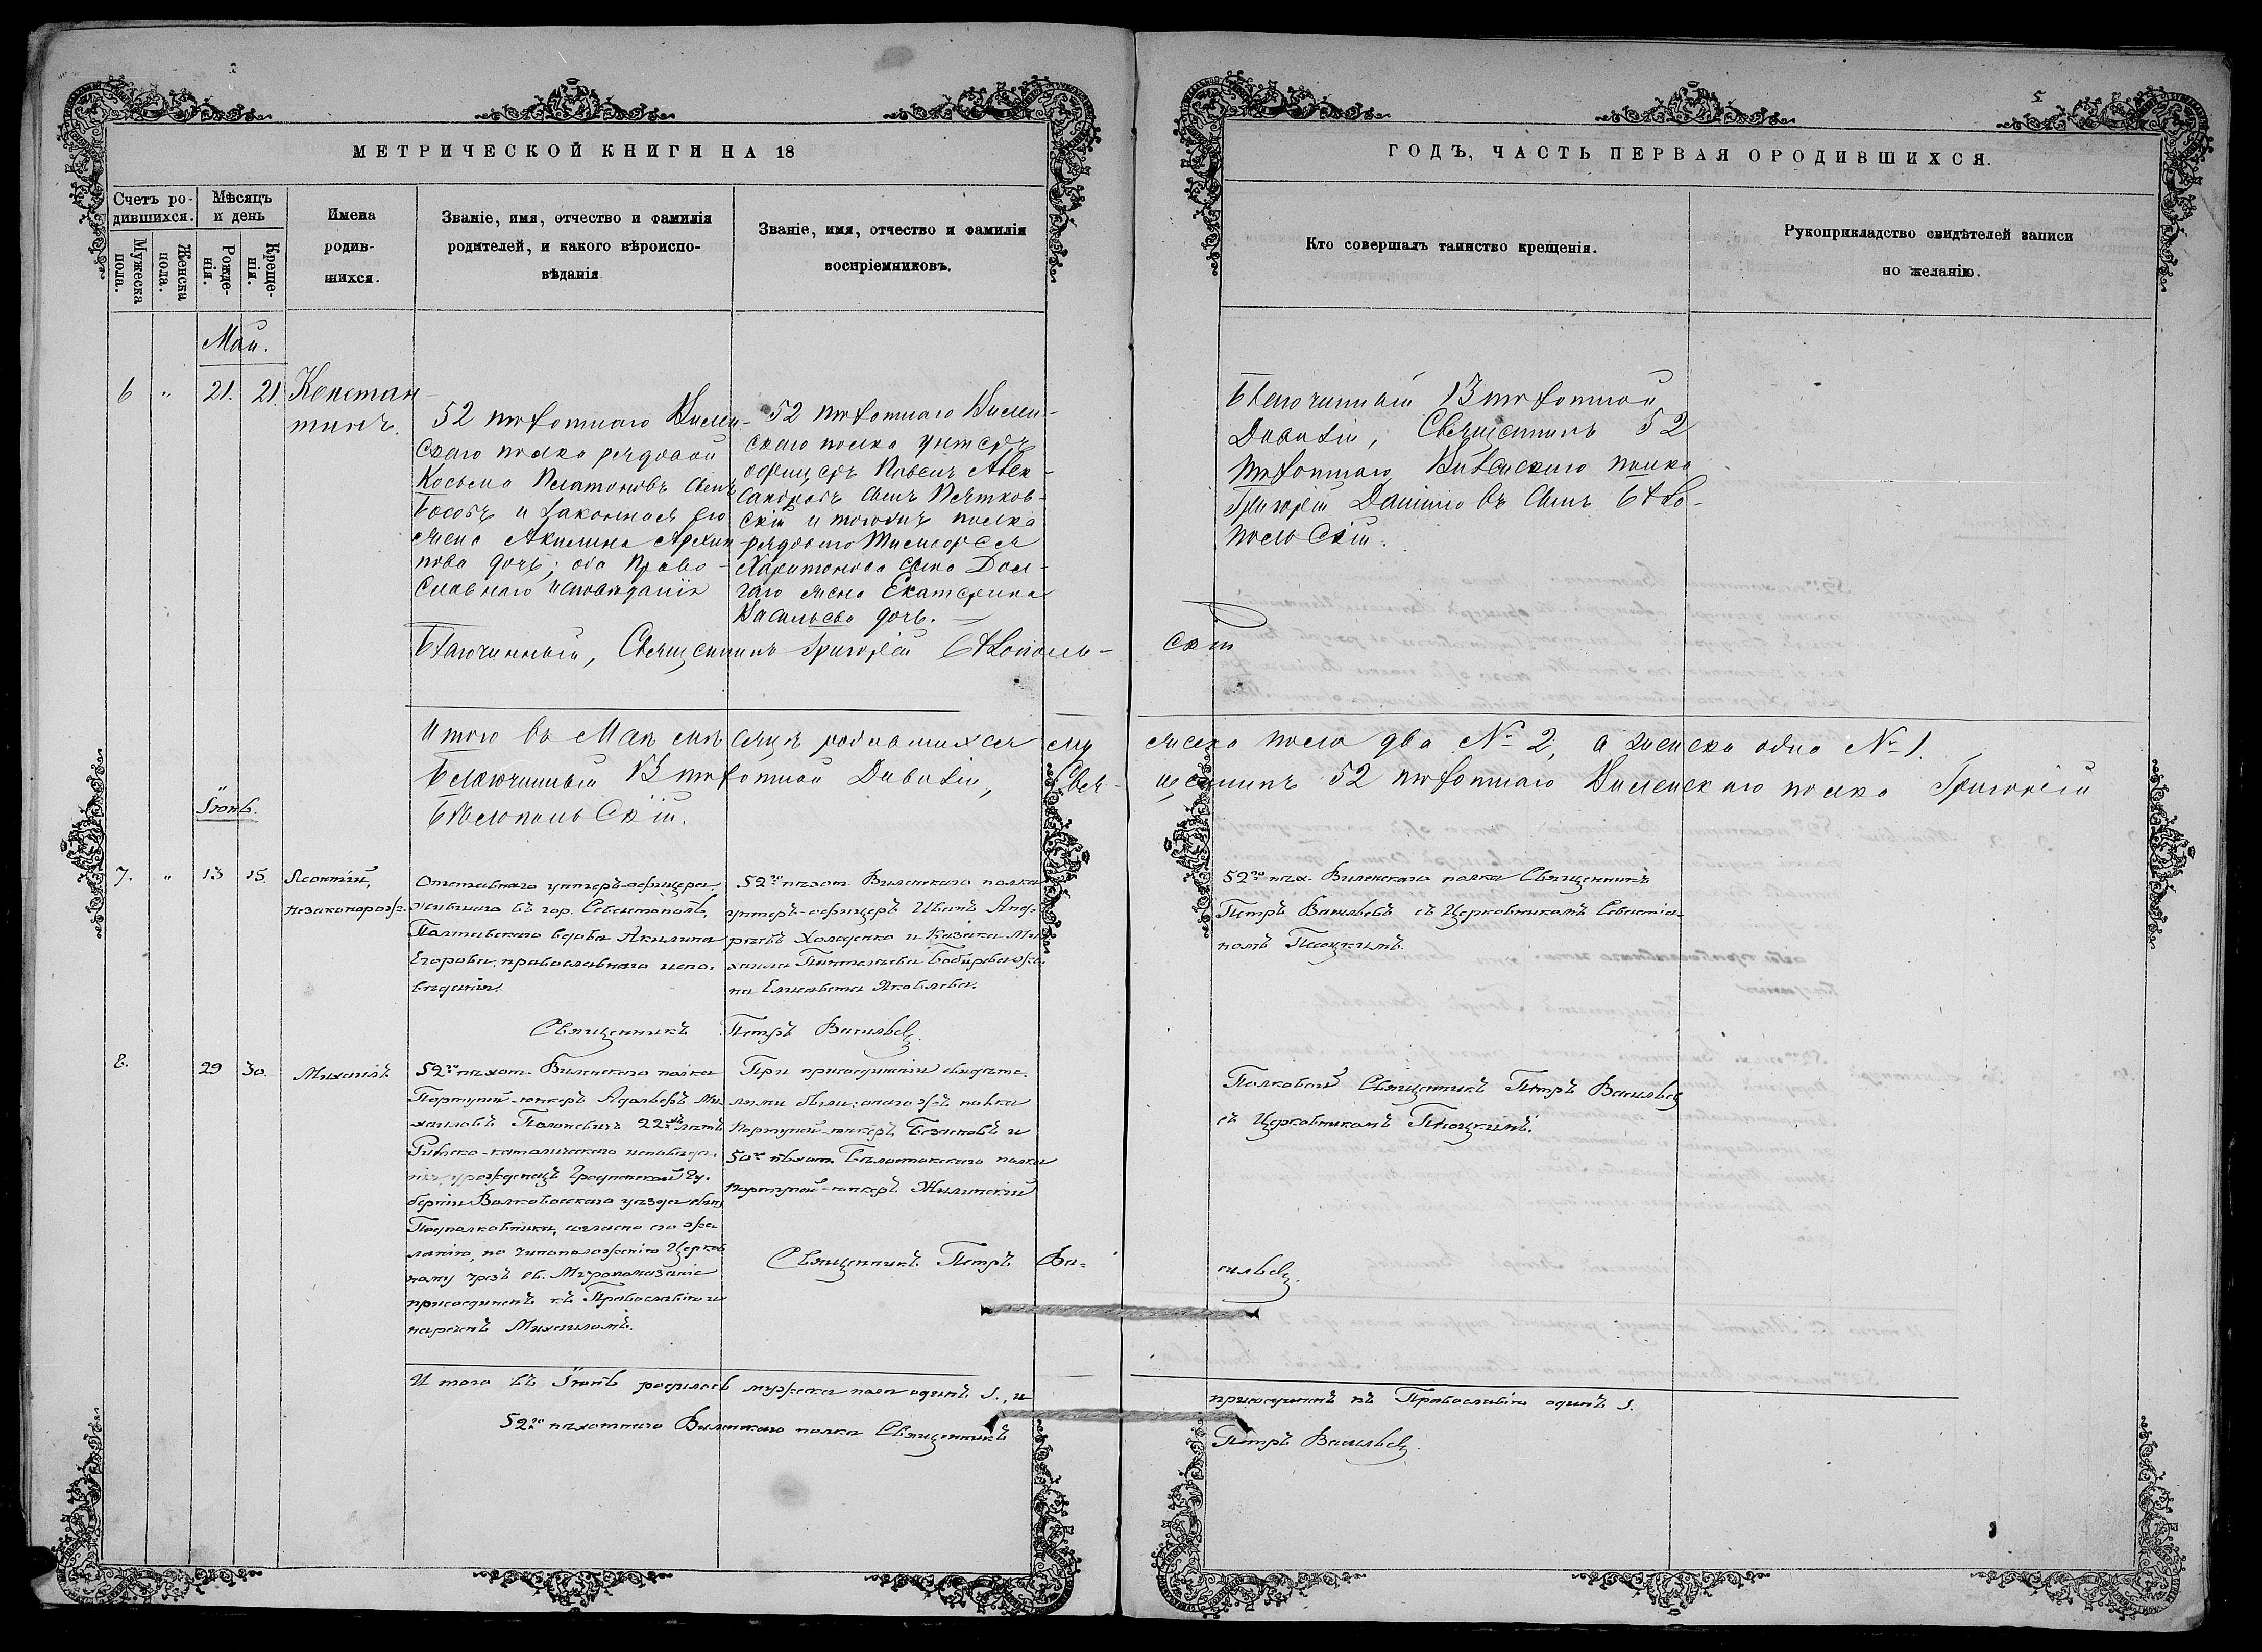 5
МЕТРИЧЕСКОЙ КНИГИ НА 18
Счетъ ро-
дившихся.
Мужеска пола.
Женска пола.
Мѣсяцъ
и день
Рожде-
нія.
Креще-
нія.
Имена
родив-
шихся.
Званіе, имя, отчество и фамилія
родителей, и какого вѣроиспо-
вѣданія
Званіе, имя, отчество и фамилія
воспріемниковъ.
ГОДЪ, ЧАСТЬ ПЕРВАЯ О РОДИВШИХСЯ.
Кто совершалъ таинство крещенія.
Рукоприкладство свидѣтелей записи
по желанію.
Май.
6 " 21. 21. Констан-
тинъ.
52 пѣхотнаго Вилен-
скаго полка рядовой
Косьма Платоновъ сынъ
Босовъ и законная его
жена Акилина Архип
пова дочь; оба право-
славнаго исповѣданія
52 пѣхотнаго Вилен-
скаго полка унтеръ
офицеръ Павелъ Алек-
сандровъ сынъ Пятков-
скій и тогожъ полка
рядоваго Тимофея
Харитонова сына Дол-
гаго жена Екатерина
Васильева дочь.
Благочинный 13 пѣхотной
Дивизіи, Священникъ 52
пѣхотнаго Виленскаго полка
Григорій Даниловъ сынъ Бѣло-
польскій.
Благочинный, Священникъ Григорій Бѣлополь-
скій
Итого въ Маѣ мѣсяцѣ родившихся му жеска пола два № 2, а женска одна № 1.
Благочинный 13 пѣхотной Дивизіи, Свя- щенникъ 52 пѣхотнаго Виленскаго полка Григорій
Бѣлопольскій.
Іюнь.
7. " 13 15. Леонтій,
незаконорож.
Отставнаго унтеръ-офицера
жившаго въ гор. Севастополѣ,
Полтавскаго вдова Акилина
Егорова, православнаго испо-
вѣданія.
52го пѣхот. Виленскаго полка
унтеръ-офицеръ Иванъ Анд-
реевъ Холоденко и Казака Ми-
хаила
на Елисавета Яковлева.
52го пѣх. Виленскаго полка Священникъ
Петръ Васильевъ съ Церковникомъ Севастіа-
номъ
Священникъ Петръ Васильевъ.
8. 29 30. Михаилъ
52го пѣхот. Виленскаго полка
Портупей-юнкеръ Адольфъ Ми-
хаиловъ 22хъ лѣтъ
Римско-католическаго исповѣда-
нія, урожденецъ Гродненской Гу-
берніи Волковыскаго уѣзда сынъ
Подполковника, согласно его же-
ланію, по чиноположенію Церков
ному чрезъ св. Мѵропомазаніе
присоединенъ къ Православію и
нареченъ Михаиломъ.
При присоединеніи свидѣте-
лями были: онаго жъ полка
Портупей-юнкеръ и
50го пѣхот. Бѣлостокскаго полка
портупей-юнкеръ Жилинскій
Полковой Священникъ Петръ Васильевъ
съ Церковникомъ
Священникъ Петръ Ва- сильевъ.
Итого въ Іюнѣ родилось мужеска пола одинъ 1., и присоединенъ къ Православію одинъ 1.
52го пѣхотнаго Виленскаго полка Священникъ Петръ Васильевъ.